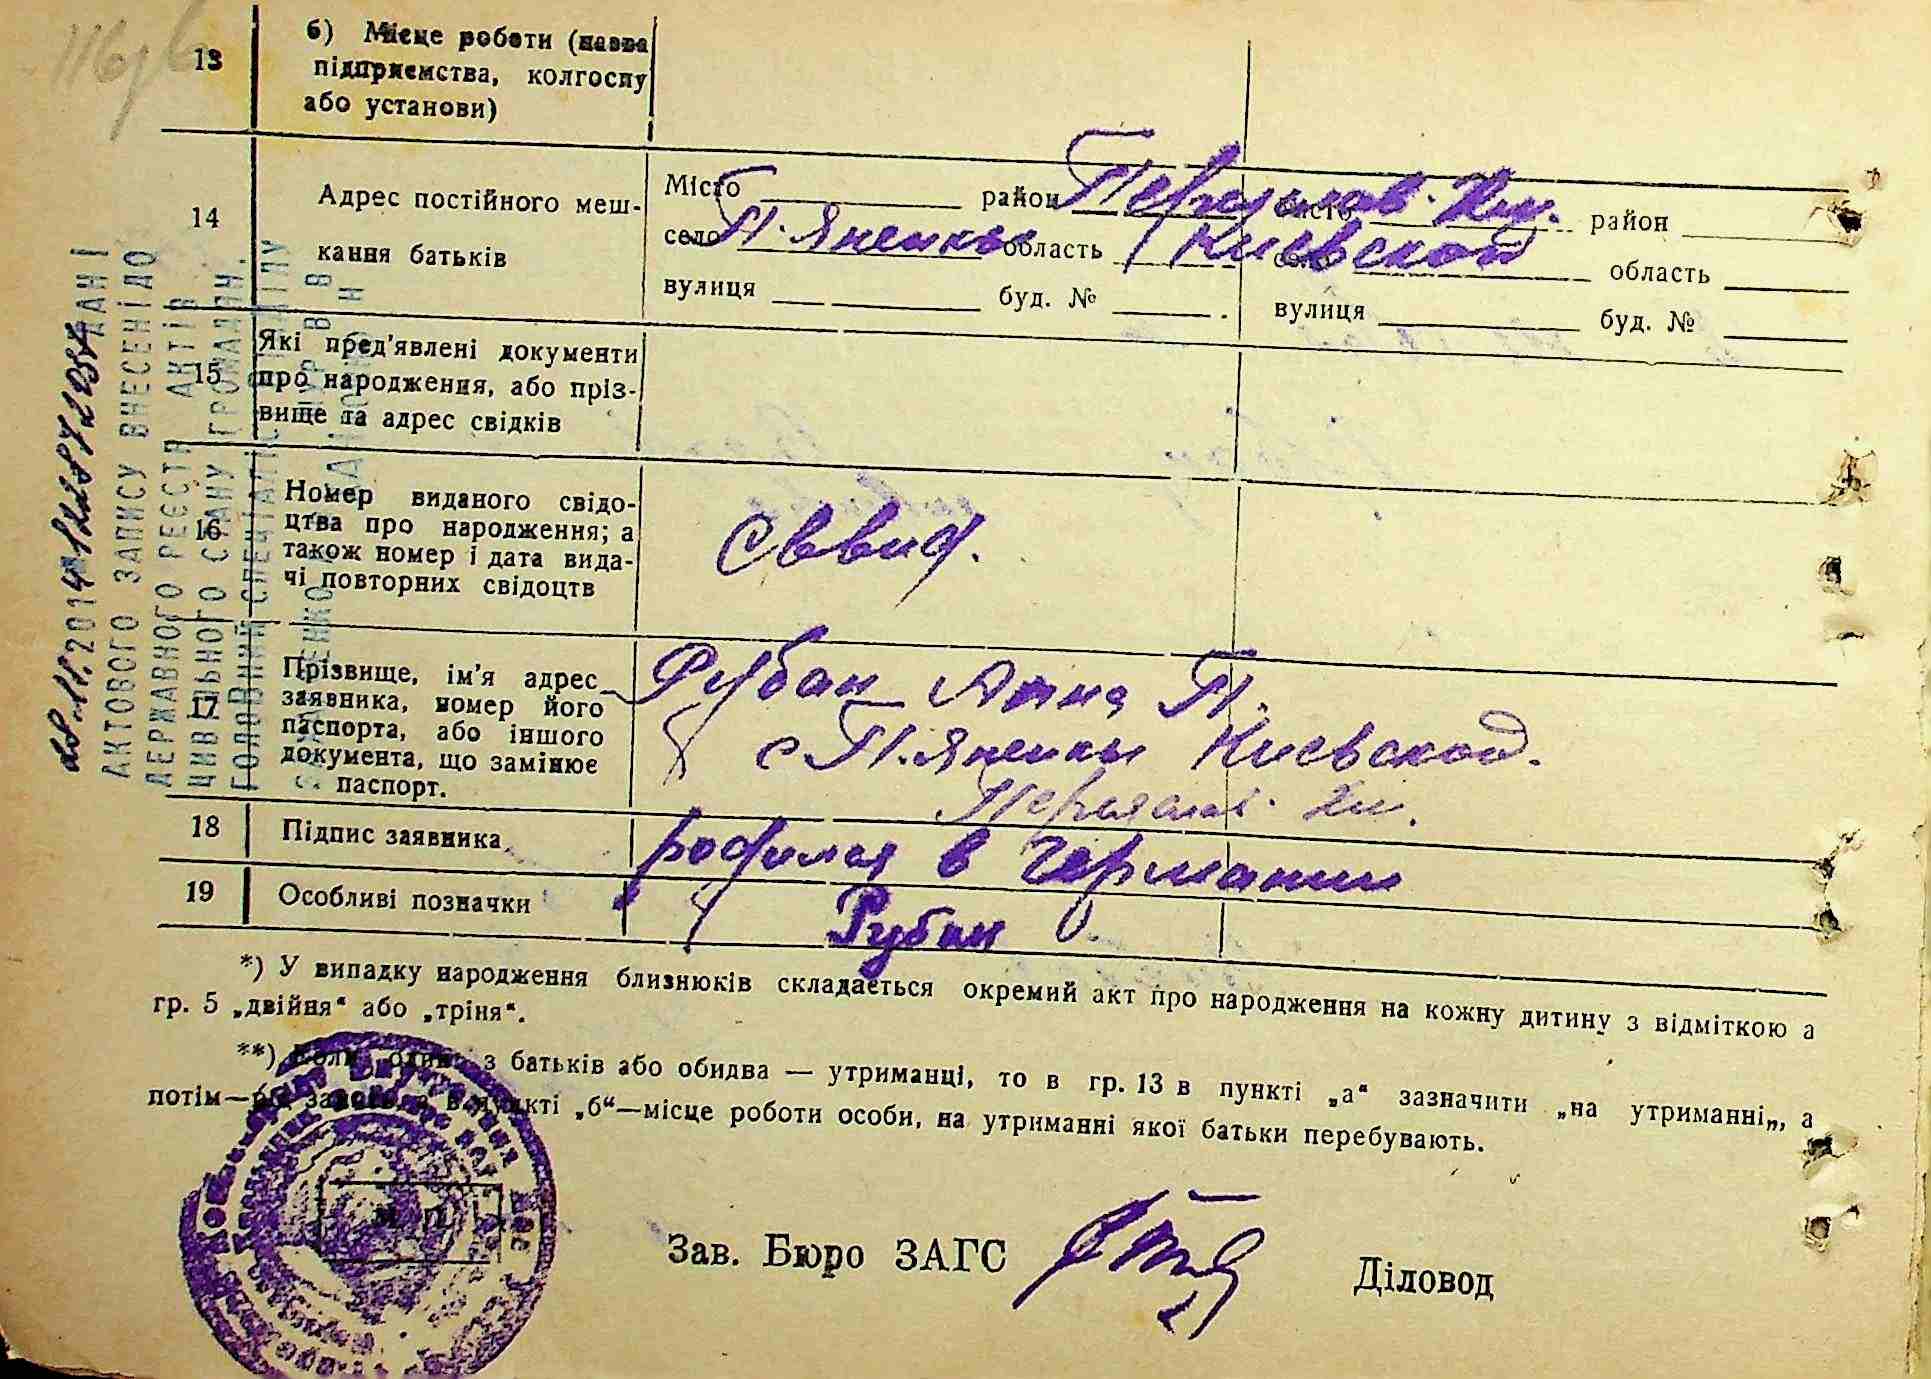 13
б) Місце роботи (назва
підприємства, колгоспу
або установи)
14
Адрес постійного меш-
кання батьків
Місто район Переяслав-Хм. місто район
село П. Яненки область Киевской село область
вулиця буд. № вулиця буд. №
15
Які пред'явлені документи
про народження, або пріз-
вище та адрес свідків
16
Номер виданого свідо-
цтва про народження; а
також номер і дата вида-
чі повторних свідоцтв
17
Прізвище, ім'я адрес
заявника, номер його
паспорта, або іншого
документа, що замінює
паспорт.
Рубан Анна П.
с П. Яненки Киевской.
Переяслав. Хм.
18
Підпис заявника
родился в Германии
19
Особливі позначки
Рубан
*) У випадку народження близнюків складається окремий акт про народження на кожну дитину з відміткою а
гр. 5 „двійня“ або „тріня“.
**) Коли один з батьків або обидва — утриманці, то в гр. 13 в пункті „а“ зазначити „на утриманні„, а
потім— в пункті „б“—місце роботи особи, на утриманні якої батьки перебувають.
Зав. Бюро ЗАГС
Діловод
ДАНІ
АКТОВОГО ЗАПИСУ ВНЕСЕНІ ДО
ДЕРЖАВНОГО РЕЄСТР АКТІВ
ЦИВІЛЬНОГО СТАНУ ГРОМАДЯН.
ГОЛОВНИЙ СПЕЦІАЛІСТ